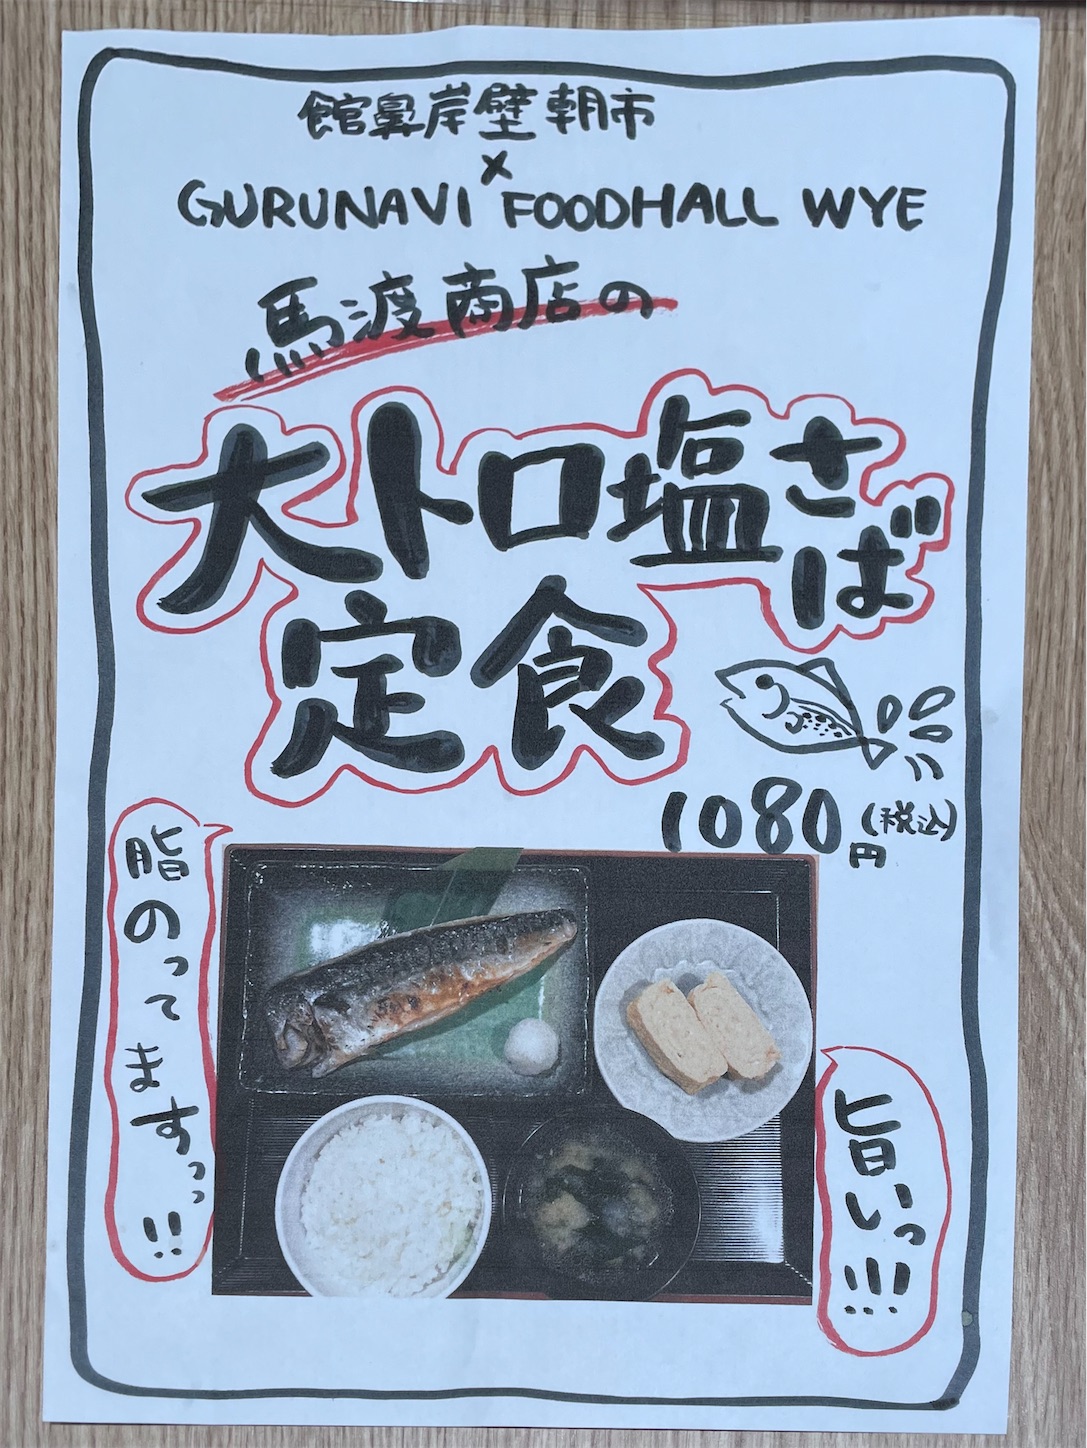 館鼻岸壁朝市
×
GURUNAVI FOODHALL WYE
馬渡商店の
大トロ塩さば
定食
1080円(税込)
脂のってますっっ!!
旨いっ!!!